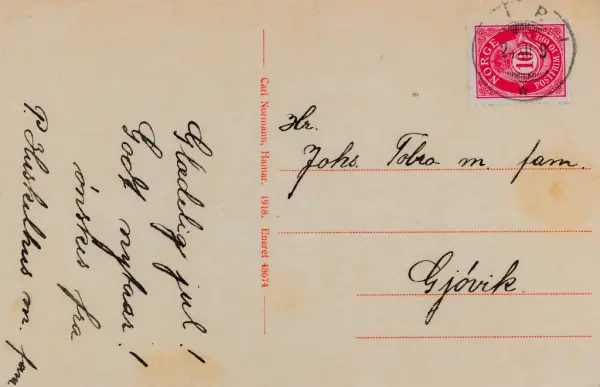 Glædelig jul!
Godt nytaar!
ønskes fra
P. Huskelhus m. fam
Carl Normann, Hamar. 1918. Eneret 48674
NORGE
10
POSTFRIM 10 ØRE
Hr.
Johs. Tobro m. fam.
Gjövik.